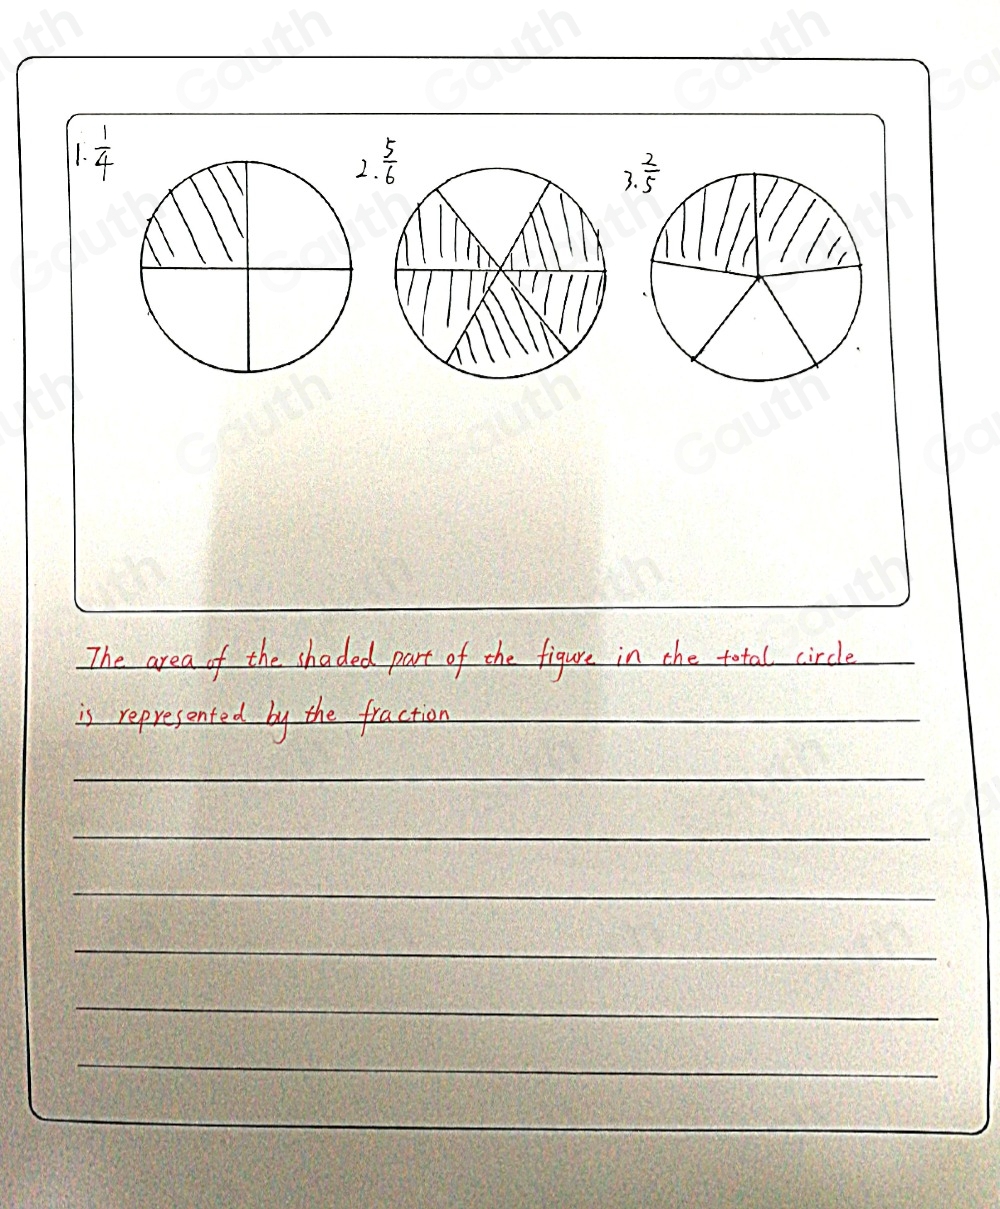 1. 1/4 2. 5/6 3. 2/5
The area of the shaded part of the figure in the total circle
is represented by the fraction
Gauth